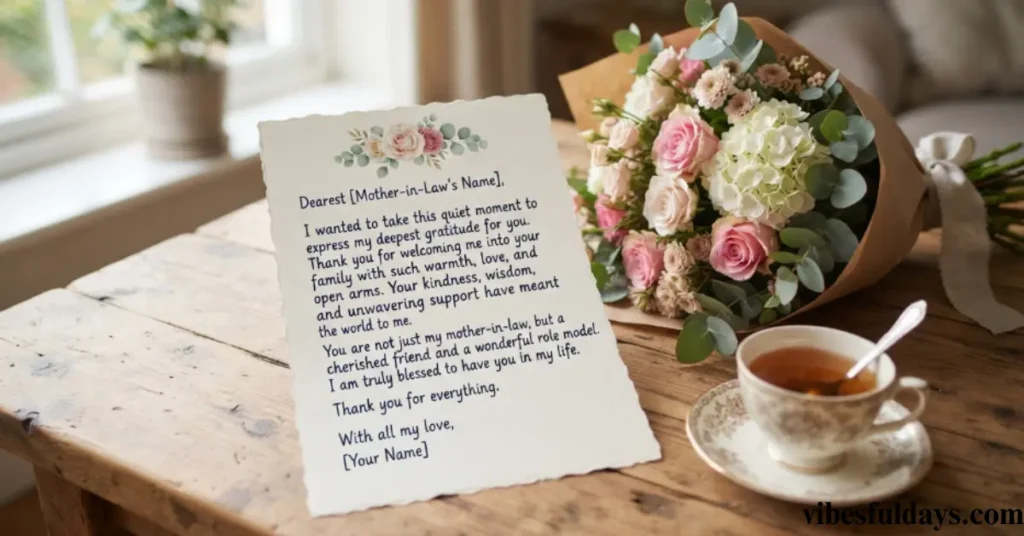 Dearest [Mother-in-Law's Name],
I wanted to take this quiet moment to
express my deepest gratitude for you.
Thank you for welcoming me into your
family with such warmth, love, and
open arms. Your kindness, wisdom,
and unwavering support have meant
the world to me.
You are not just my mother-in-law, but a
cherished friend and a wonderful role model.
I am truly blessed to have you in my life.
Thank you for everything.
With all my love,
[Your Name]
vibesfuldays.com